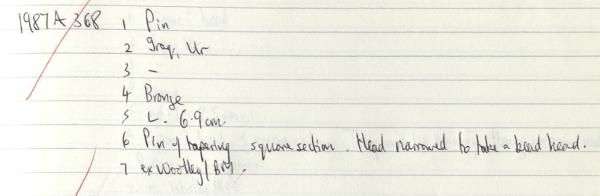 1987A 368 1 Pin
2 Iraq, Ur
3 -
4 Bronze
5 L. 6.9cm.
6 Pin of tapering square section. Head narrowed to take a bead head.
7 ex Woolley/BM.